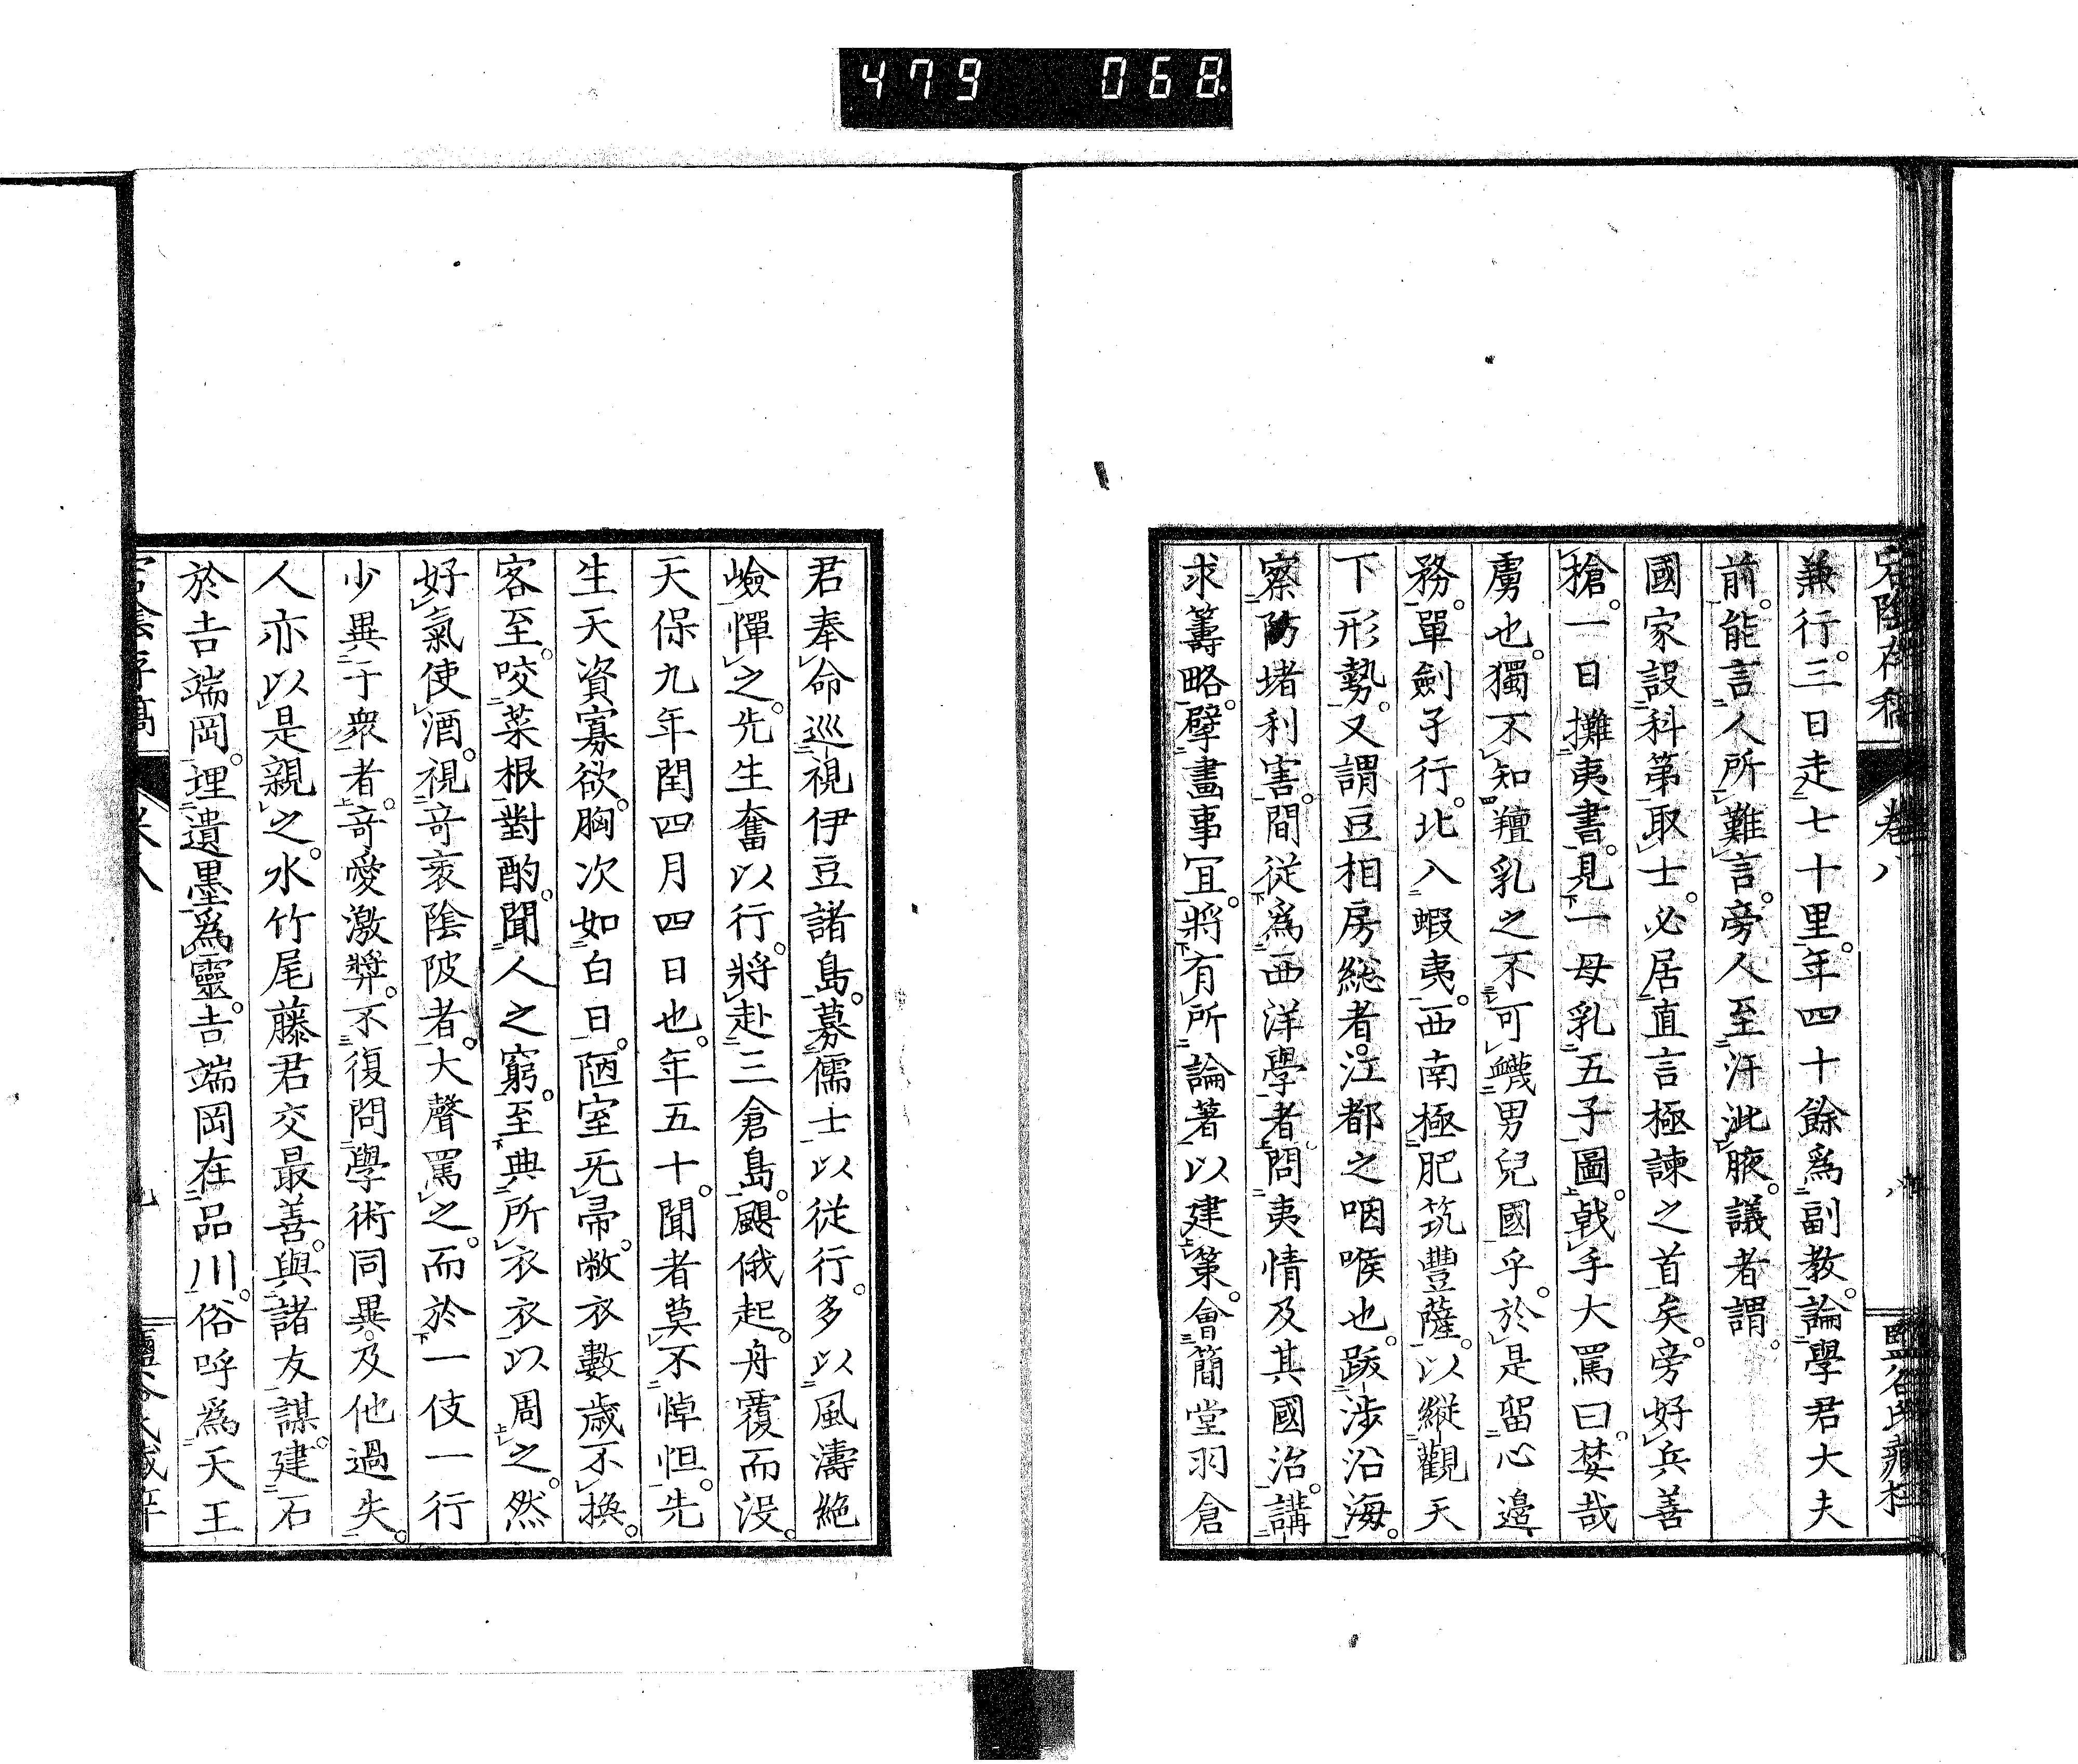 479 068
宕陰存稿 卷八
兼行。三日走七十里。年四十餘爲副教。論學君大夫
前。能言人所難言。旁人至汗泚腋。議者謂。
國家設科第取士。必居直言極諫之首矣。旁好兵善
槍。一日攤夷書。見一母乳五子圖。戟手大罵曰。婪哉
虜也。獨不知羶乳之不可衊男兒國乎。於是留心邊
務。單劍子行。北入蝦夷。西南極肥筑豐薩。以縱觀天
下形勢。又謂豆相房總者。江都之咽喉也。跋涉沿海。
察防堵利害。間從爲西洋學者。問夷情及其國治。講
求籌略。擘畫事宜。將有所論著以建策。會簡堂羽倉
君奉命巡視伊豆諸島。募儒士以從行。多以風濤絕
嶮憚之。先生奮以行。將赴三倉島。颶俄起。舟覆而沒。
天保九年閏四月四日也。年五十。聞者莫不悼怛。先
生天資寡欲。胸次如白日。陋室旡帚。敝衣數歲不換。
客至。咬菜根對酌。聞人之窮。至典所衣衣以周之。然
好氣使酒。視竒衺陰陂者。大聲罵之。而於一伎一行
少異于衆者。竒愛激奬。不復問學術同異。及他過失。
人亦以是親之。水竹尾藤君交最善。與諸友謀。建石
於吉端岡。埋遺墨爲靈。吉端岡在品川。俗呼爲天王